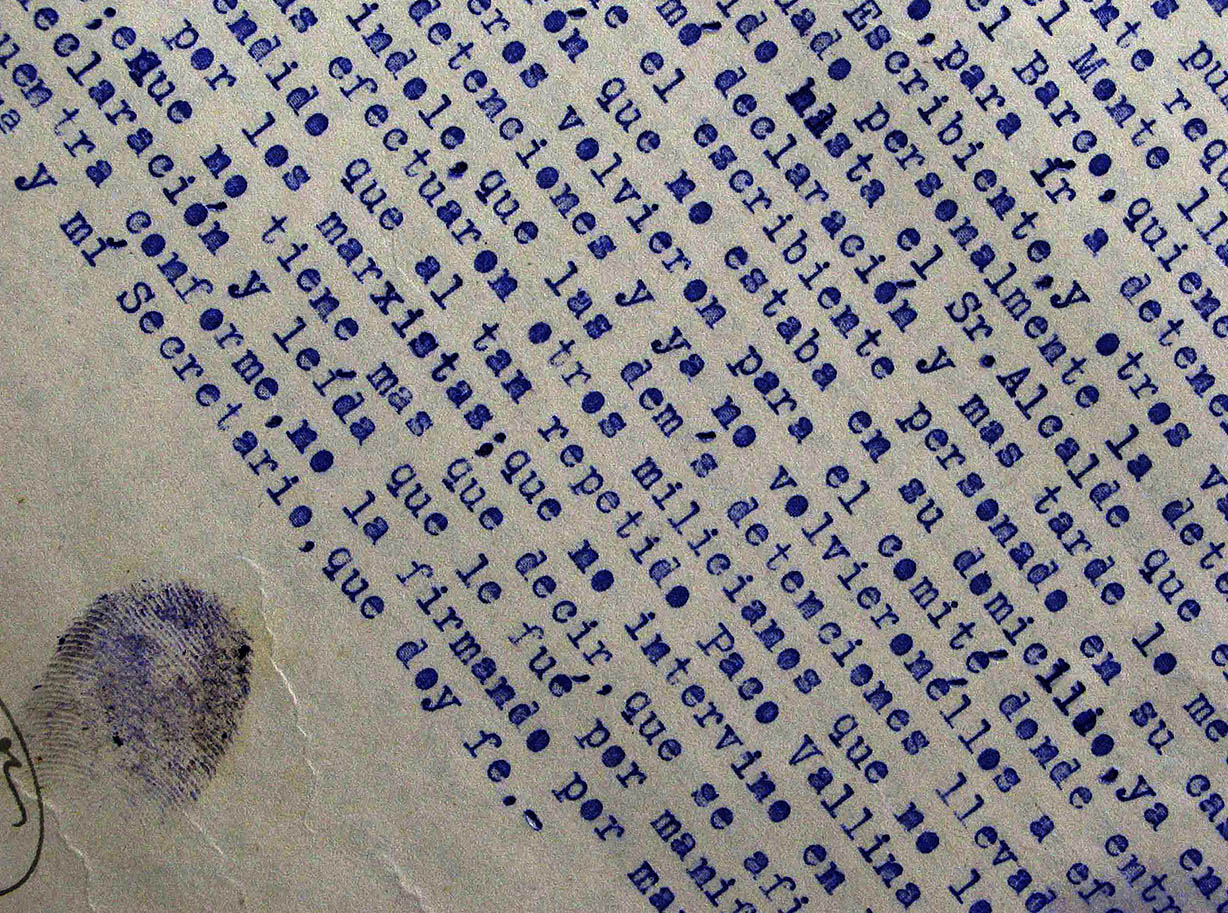 ente requ
el Monte
el Barco, quiene
,para ir a detene
Escribiente,y otros va
uado personalmente la dete
ido hasta el Sr.Alcalde que e
mó declaración y mas tarde lo me
el escribiente personado en su cas
ón que no estaba en su domicilio,ya en
eros volvieron para el comité donde entr
detenciones y ya no volvieronéllos a efe
indole,que las dem's detenciones llevad
us efectuaron otros milicianos que no l
endido que al tan repetido Paco Vallina
por los marxistas;que no intervino en
que no tiene mas que decir,que se afi
eclaración y leída que le fué por manif
uentra conforme,no la firmando por ma
y mí Secretario,que doy fe.-